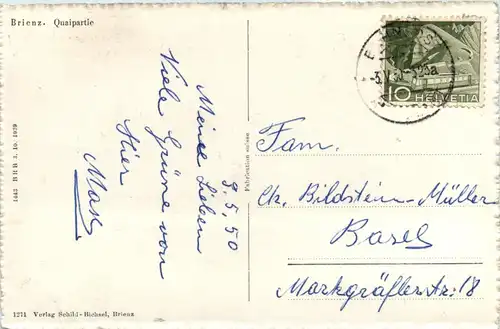 Brienz. Quaipartie
9.5.50
Meine Lieben
Viele Grüsse von
Hier
Max
1443 BRB 3. 10. 1939
Fabrication suisse
10 HELVETIA
Fam.
Ck. Bildstein-Müller
Basel
Markgräflerstr. 18
1271 Verlag Schild-Bichsel, Brienz